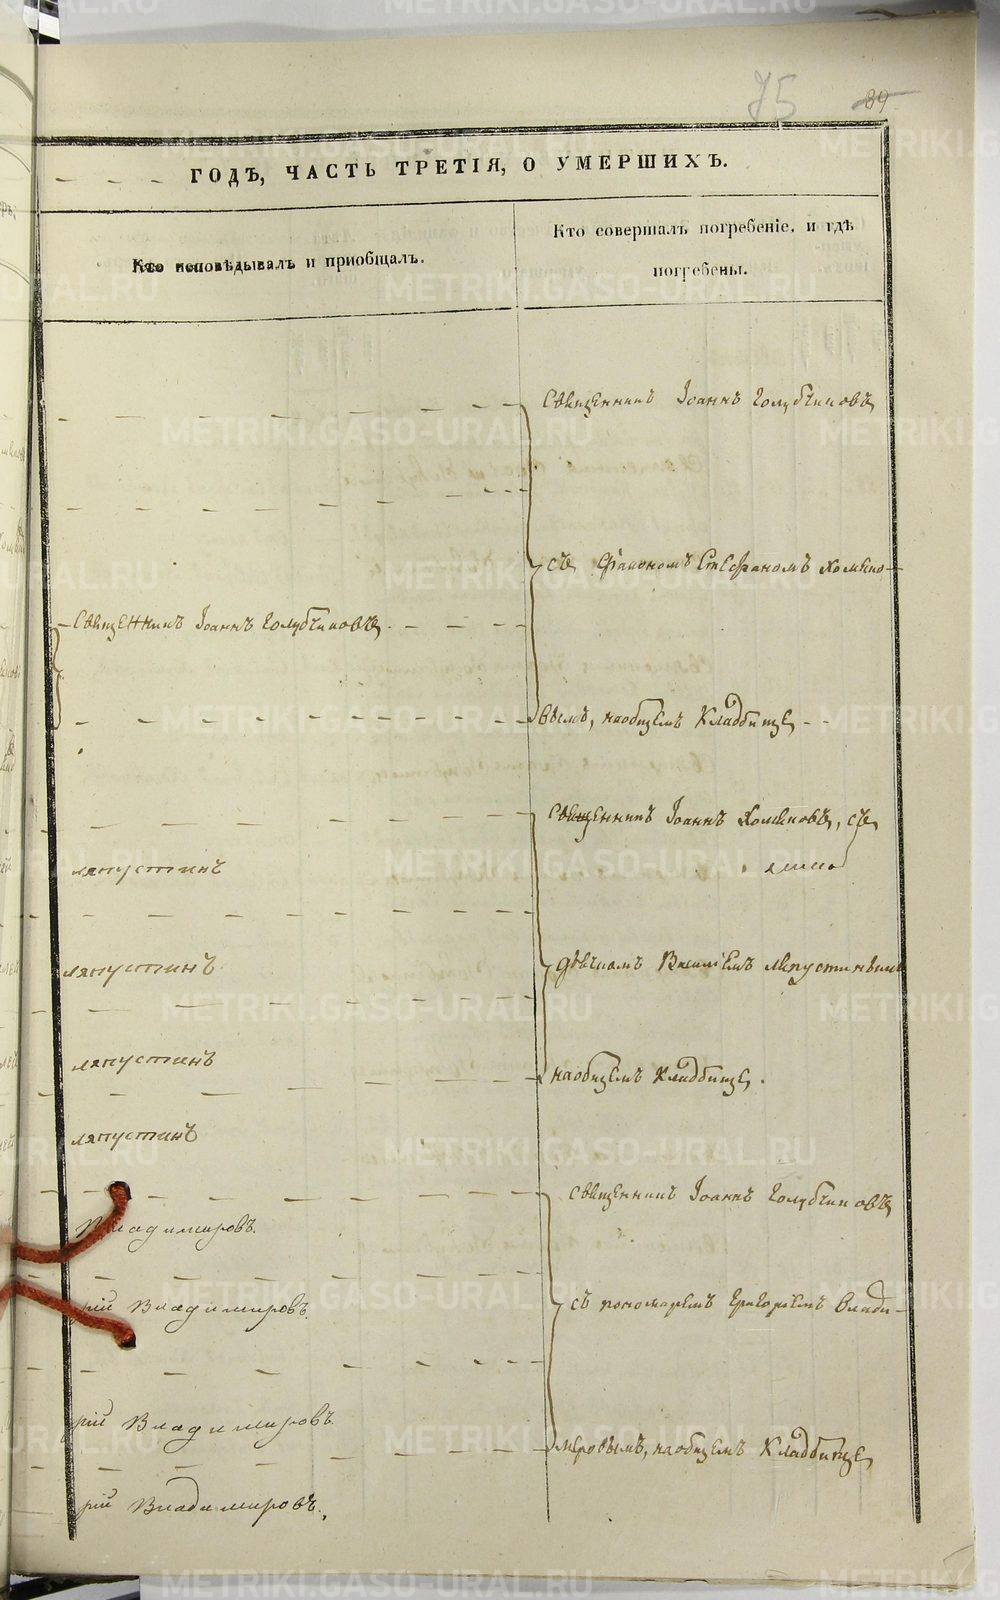 75 89
ГОДѢ, ЧАСТЬ ТРЕТІЯ, О УМЕРШИХЪ.
Кто исповѣдывалъ и пріобщалъ.
Кто совершалъ погребеніе, и гдѣ
погребены.
Священникъ Іоаннъ Голубчиковъ,
съ Діакономъ Стефаномъ Хомяко-
Священникъ Іоаннъ Голубчиковъ,
вымъ, на общемъ Кладбище,
Священникъ Іоаннъ Хомяковъ, съ
Ляпустинъ
Ляпустинъ
дьячкомъ Василіемъ Ляпустинымъ
Ляпустинъ
на общемъ Кладбище.
Ляпустинъ
Священникъ Іоаннъ Голубчиковъ
Владимировъ.
рій Владимировъ.
съ пономаремъ Григоріемъ Влади-
рій Владимировъ.
меровымъ, на общемъ Кладбище,
рій Владимировъ.
METRIKI.GASO-URAL.RU